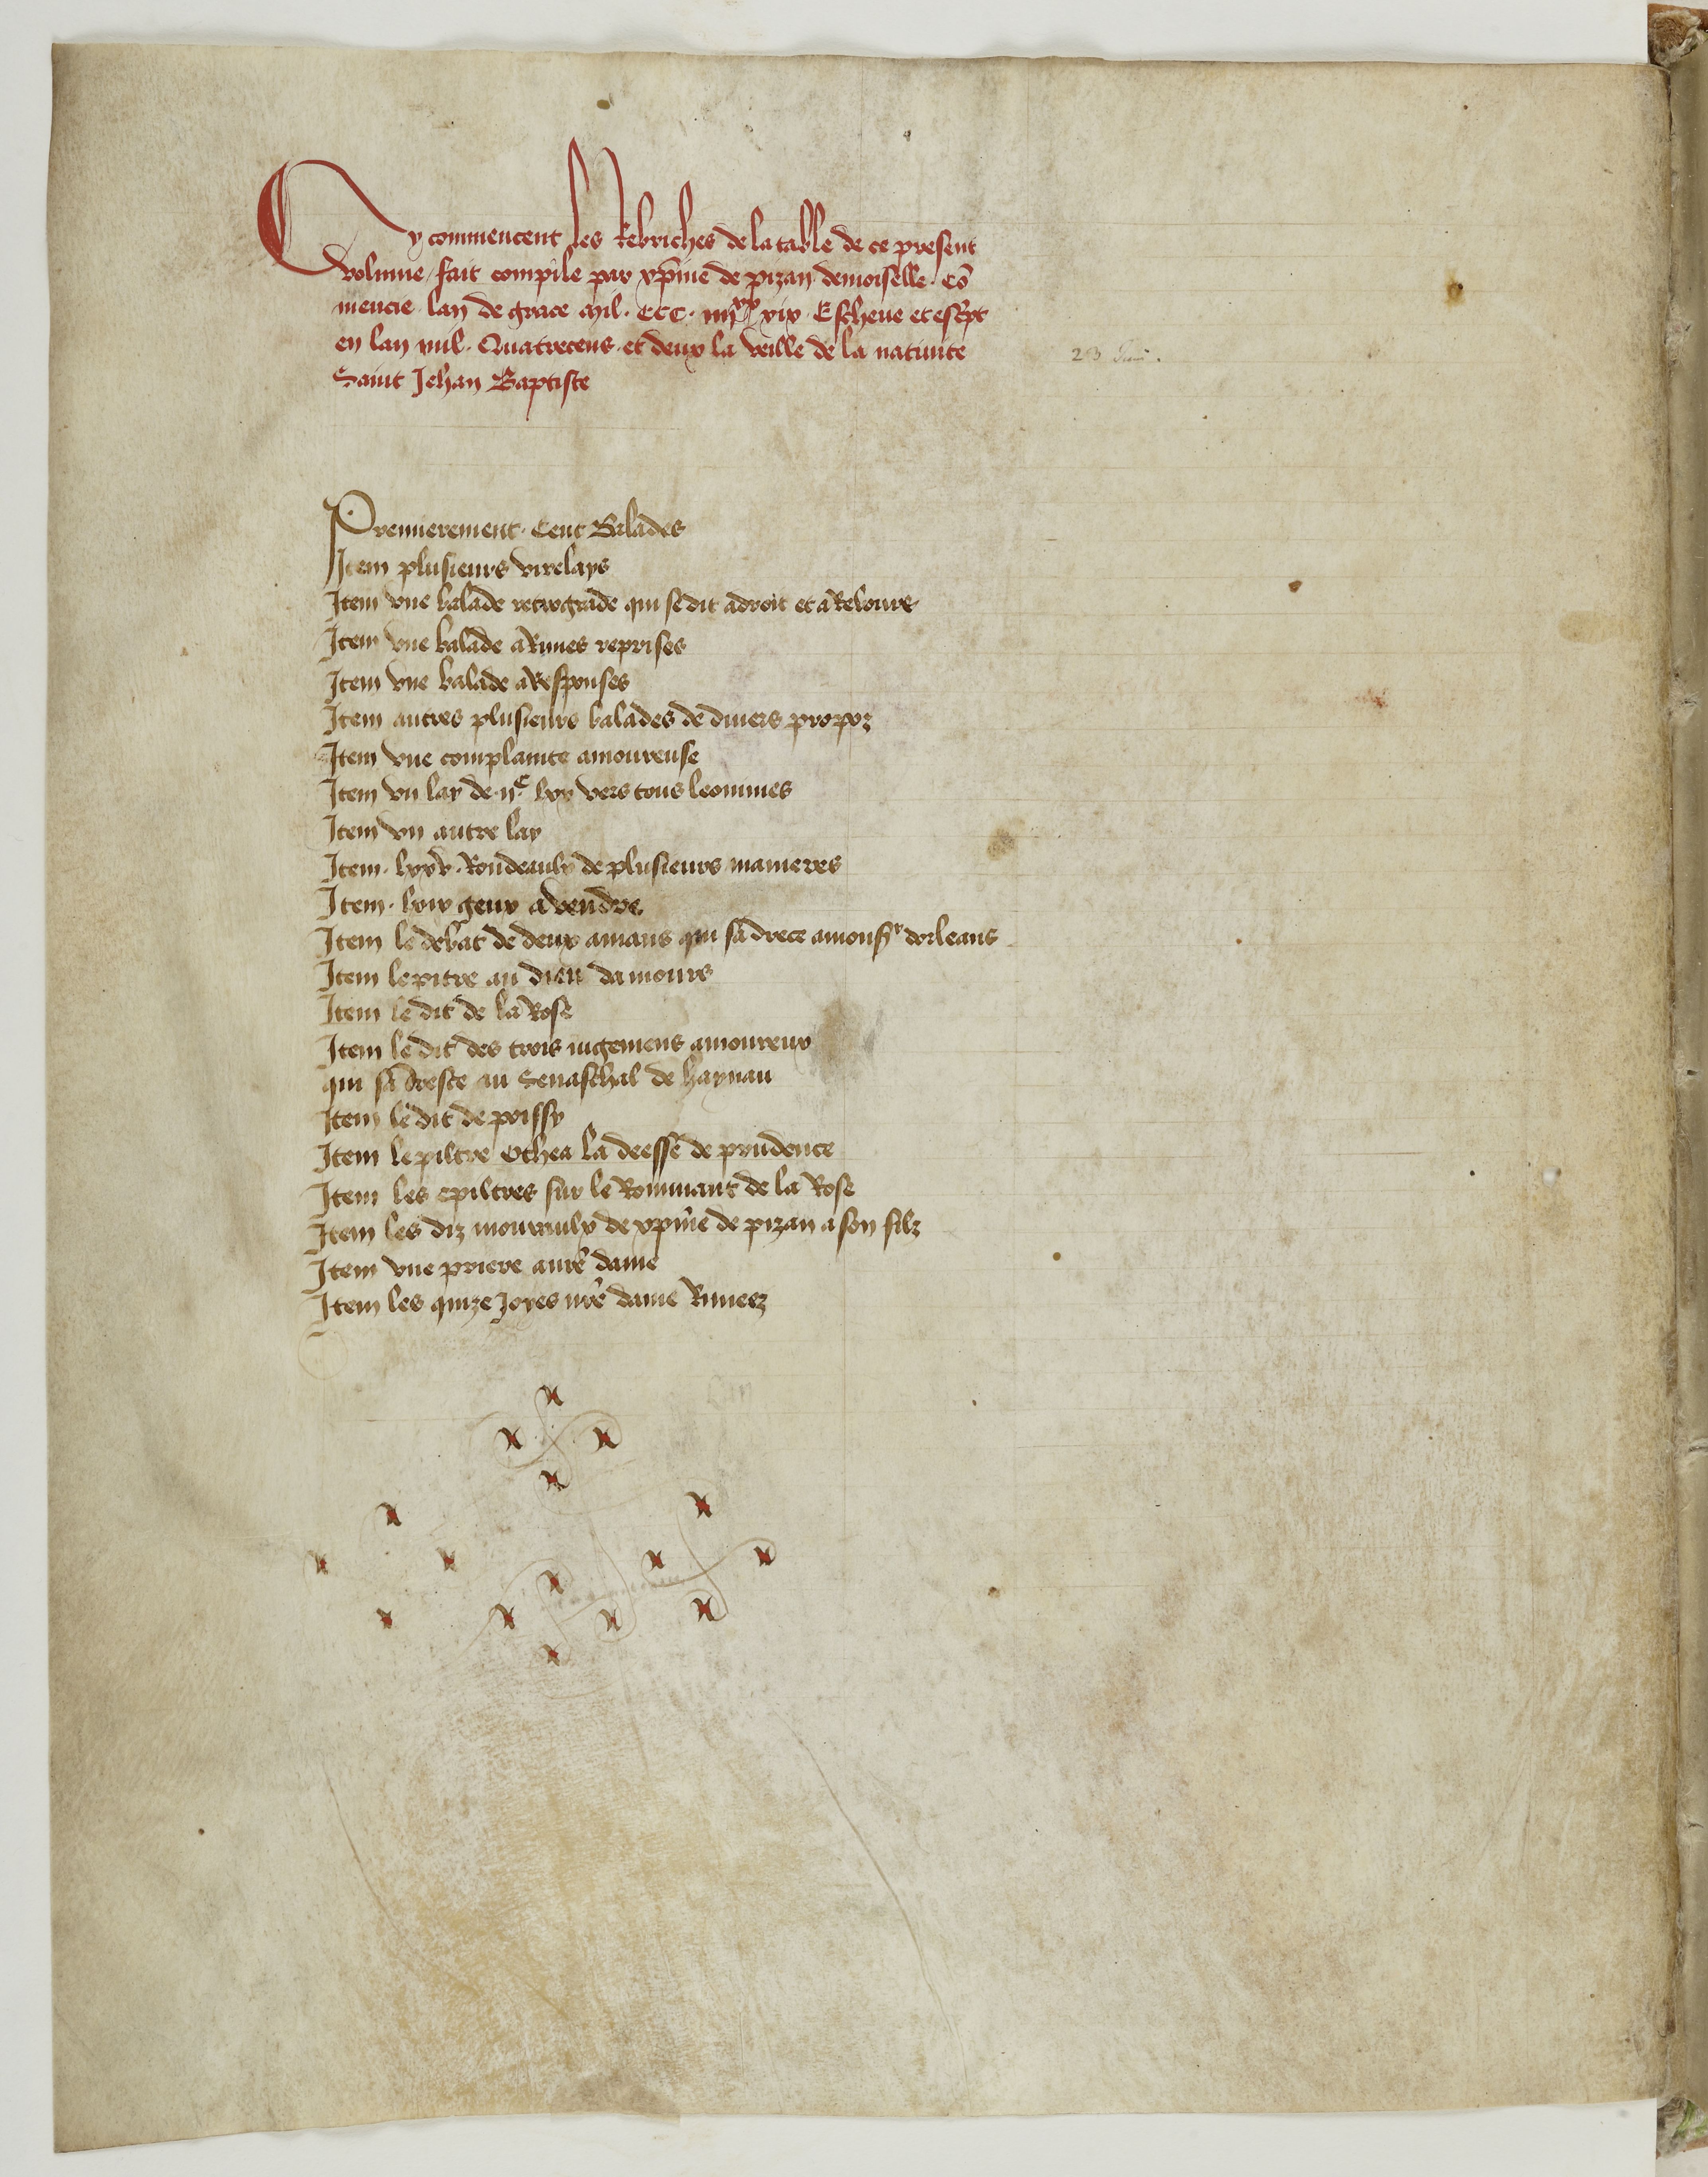 Cy commencent les Rebriches de la table de ce present
volume fait compile par xpine de pizan demoiselle . Co
mencie lan de grace mil . CCC . iiijxx xix . Escheue et escpt
en lan mil . Quatrecens . et deux la veille de la natiuite
Saint Jehan Baptiste
23 Juin .
Premierement . Cent Balades
Item plusieurs virelays
Item vne balade retrograde qui se dit adroit et a Rebours
Item vne balade a Rimes reprises
Item vne balade a Responses
Item autres plusieurs balades de diuers propoz
Item vne complainte amoureuse
Item vn lay de ijC lxv vers tous leonimes
Item vn autre lay
Item . lxix . Rondeaulx de plusieurs manieres
Item . lxiv geux a vendre
Item le debat de deux amans qui sadrece amonsr dorleans
Item lepitre au dieu damours
Item le dit de la Rose
Item le dit des trois iugemens amoureux
qui sadresce au Senaschal de haynau
Item le dit de poissy
Item lepistre Othea la deesse de prudence
Item les epistres sur le Rommant de la Rose
Item les diz mouraulx de xpine de pizan a son filz
Item vne priere a nre dame
Item les quize Joyes nre dame Rimeez